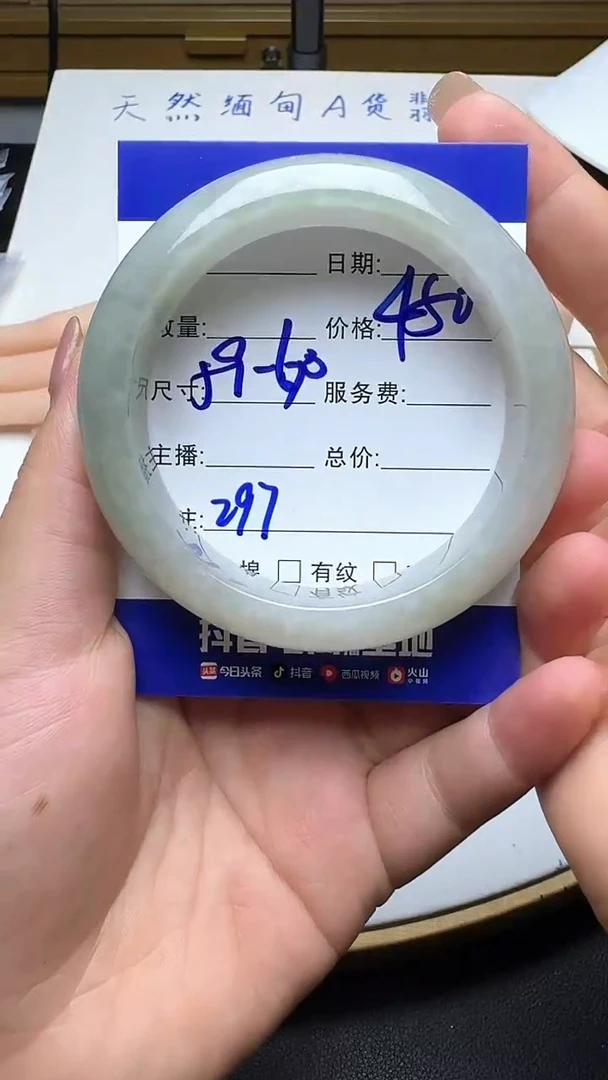 天然缅甸A货翡
日期:
数量: 价格: 450
尺寸: 59-60 服务费:
主播: 总价:
注: 297
棉 □ 有纹 □
今日头条 抖音 西瓜视频 火山